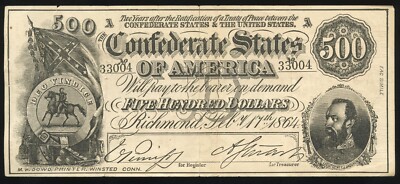 500 A A
Two Years after the Ratification of a Treaty of Peace between the
CONFEDERATE STATES & THE UNITED STATES
THE Confederate States 500
33004 33004
OF AMERICA
DEO VINDICE
Will pay to the bearer on demand
FIVE HUNDRED DOLLARS
FAC-SIMILE
Richmond, Feby 17th 1864
for Register for Treasurer
M. W. DOWD PRINTER, WINSTED CONN.